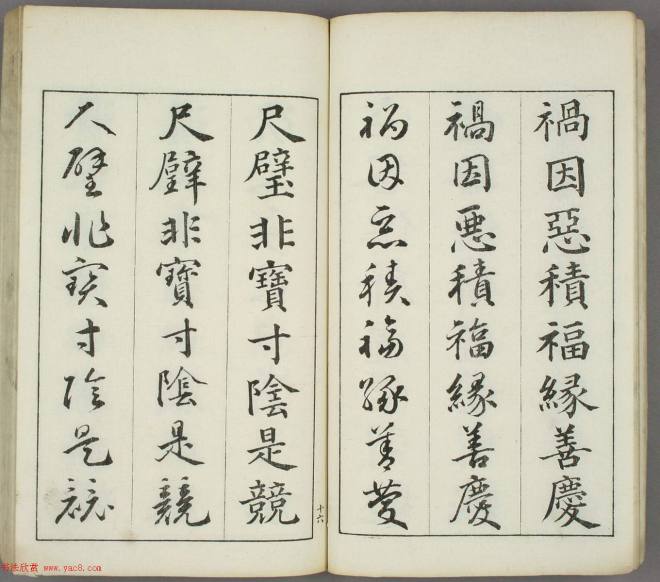 禍因惡積福緣善慶
禍因悪積福縁善慶
禍因惡積福緣善慶
十六
尺璧非寶寸陰是競
尺璧非寶寸陰是競
尺璧非寶寸陰是競
书法欣赏 www.yac8.com